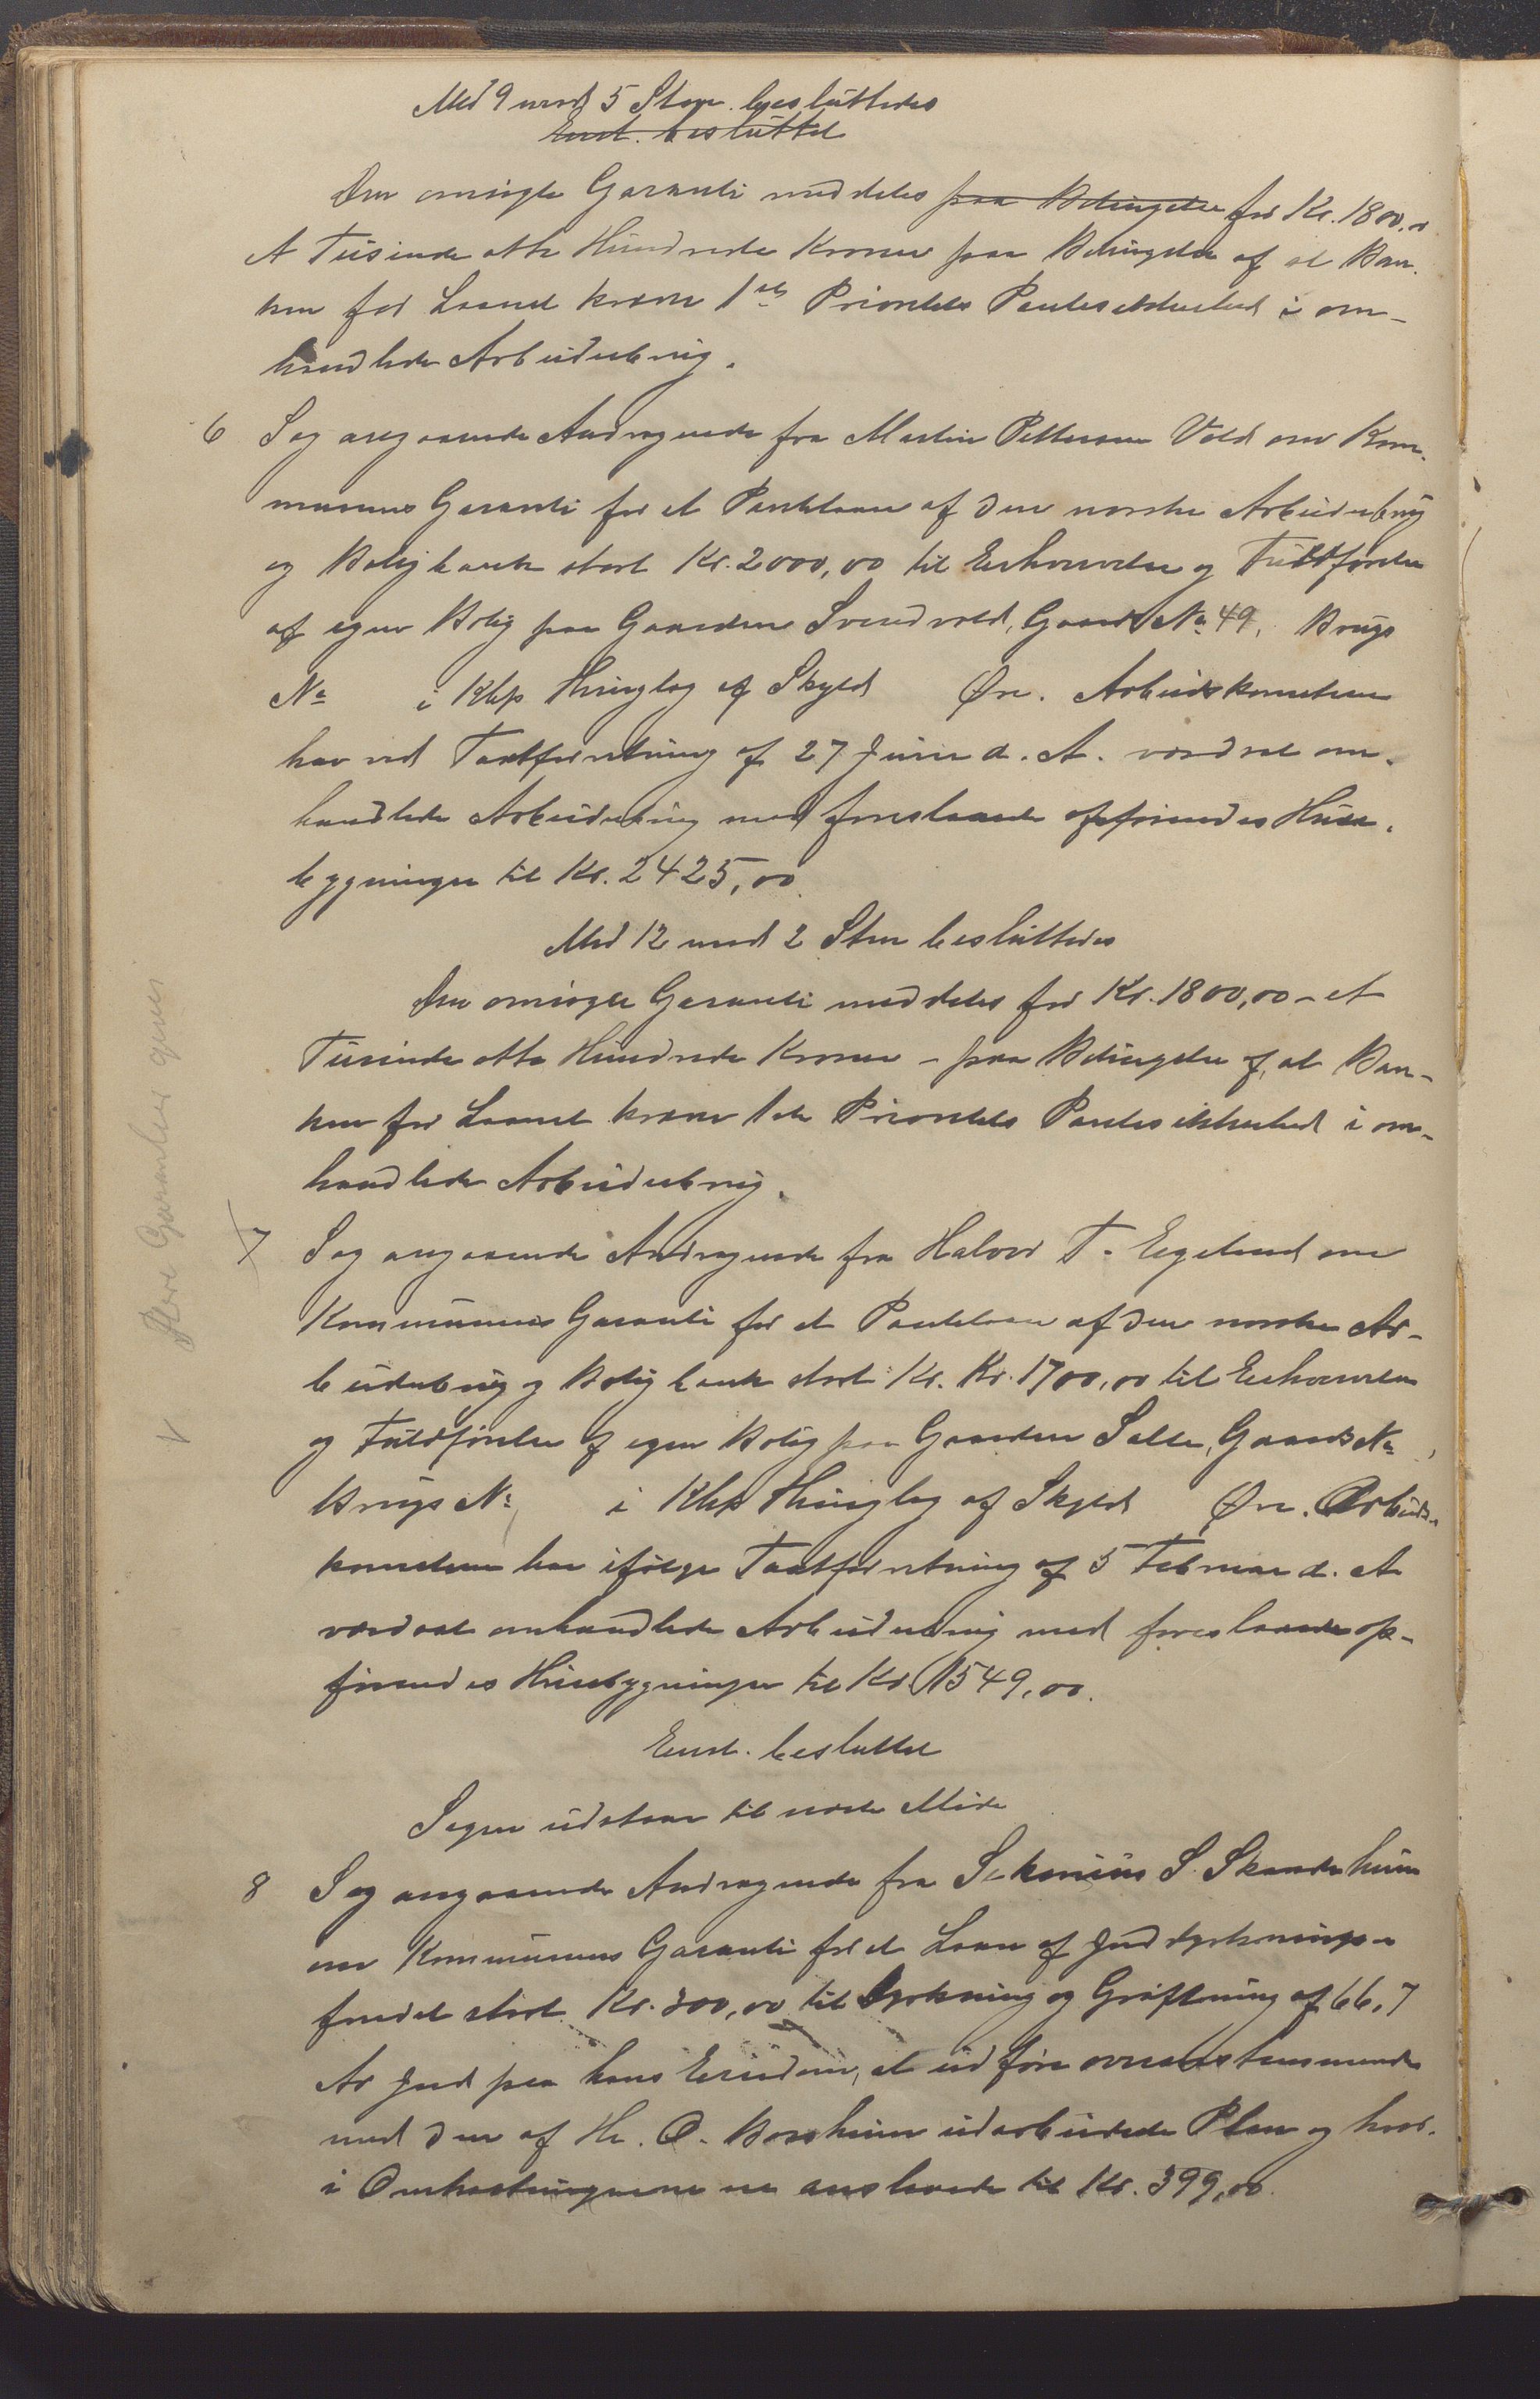 Med 9 mod 5 Stem. besluttedes
Enst. besluttet
Den omsøgte Garanti meddeles paa Betingelse for Kr. 1800.00
et Tusinde otte Hundrede Kroner paa Betingelse af at Ban-
ken for Laanet kræver 1ste Prioritets Pantesikkerhed i om-
handlede Arbeiderbrug.
6 Sag angaaende Andragende fra Martin Pettersen Vold om Kom-
munens Garanti for et Pantelaan af den norske Arbeiderbrug
og Boligbank stort Kr. 2000,00 til Erhvervelse og Fuldførelse
af egen Bolig paa Gaarden Svendvold, Gaards No 49, Brugs
No i Klep Thinglag af Skyld Øre. Arbeidskomiteen
har ved Taxtforretning af 27 Juni d. A. værdsat om-
handlede Arbeiderbrug med foreslaaede opførendes Huse-
bygninger til Kr. 2425,00
Med 12 mod 2 Stem besluttedes
Den omsøgte Garanti meddeles for Kr. 1800,00 - et
Tusinde otte Hundrede Kroner - paa Betingelse af, at Ban-
ken for Laanet kræver 1ste Prioritets Pantesikkerhed i om-
handlede Arbeiderbrug.
7 Sag angaaende Andragende fra Halvor T. Eigeland om
Kommunens Garanti for et Pantelaan af den norske Ar-
beiderbrug og Boligbank stort Kr. Kr. 1700,00 til Erhvervelse
og Fuldførelse af egen Bolig paa Gaarden Salte, Gaards No ,
Brugs No, i Klep Thinglag af Skyld Øre. Arbeids-
komiteen har ifølge Taxtforretning af 5 Februar d. A
værdsat omhandlede Arbeiderbrug med foreslaaede op-
førendes Husebygninger til Kr 1549,00.
Enst. besluttet
Sagen udstaar til næste Møde
8 Sag angaaende Andragende fra S. Skadsheim
om Kommunens Garanti for et Laan af Jorddyrknings-
fondet stort Kr. 300,00 til Dyrkning og Grøftning af 66,7
Ar Jord paa hans Eiendom, at udføre overensstemmende
med den af Hr. O. Borsheim udarbeidede Plan og hvor-
i Omkostningerne er anslaaede til Kr. 399,00.
V flere Garantier gives